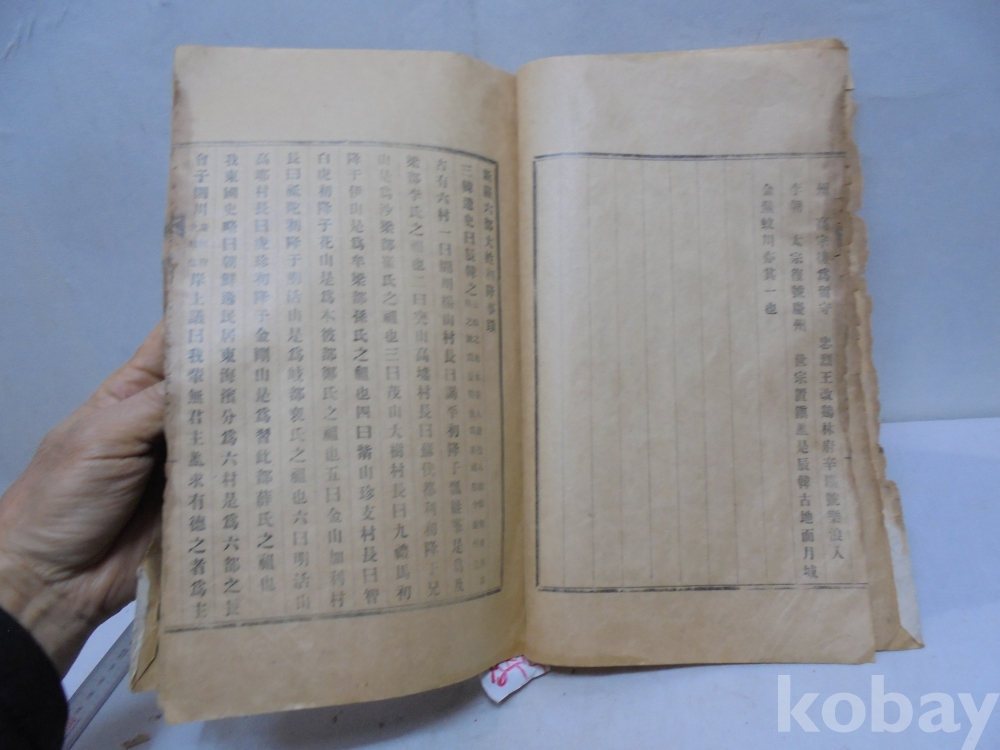 州 爲留守 忠烈王改鷄林府辛禑號樂浪入
李朝 太宗復號慶州 世宗置鎭盖是辰韓古地而月城
金鰲蚊川分爲一也
新羅六部大姓初降事蹟
三韓遺史曰辰韓之
六有六村一曰閼川楊山村長曰謁平初降于瓢嵓峯是爲及
梁部李氏之祖也二曰突山高墟村長曰蘇伐都利初降于兄
山是爲沙梁部崔氏之祖也三曰茂山大樹村長曰九禮馬初
降于伊山是爲牟梁部孫氏之祖也四曰觜山珍支村長曰智
白虎初降于花山是爲本彼部鄭氏之祖也五曰金山加利村
長曰祗沱初降于明活山是爲岐部裵氏之祖也六曰明活山
高耶村長曰虎珍初降于金剛山是爲習比部薛氏之祖也
我東國史略曰朝鮮遺民居東海濱分爲六村是爲六部之長
會于閼川岸上議曰我輩無君主盍求有德之者爲主
kobay